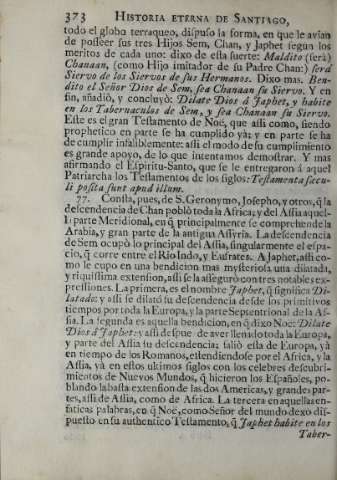 373 HISTORIA ETERNA DE SANTIAGO,
todo el globo terraqueo, dispuso la forma, en que le avian
de posseer sus tres Hijos Sem, Chan, y Japhet segun los
meritos de cada uno: dixo de esta suerte: Maldito (serà)
Chanaan, (como Hijo imitador de su Padre Chan:) serà
Siervo de los Siervos de sus Hermanos. Dixo mas. Ben-
dito el Señor Dios de Sem, sea Chanaan su Siervo. Y en
fin, añadiò, y concluyò: Dilate Dios à Japhet, y habite
en los Tabernaculos de Sem, y sea Chanaan su Siervo.
Este es el gran Testamento de Noè, que assi como, siendo
prophetico en parte se ha cumplido yà; y en parte se ha
de cumplir infaliblemente: assi el modo de su cumplimiento
es grande apoyo, de lo que intentamos demostrar. Y mas
afirmando el Espiritu-Santo, que se le entregaron à aquel
Patriarcha los Testamentos de los siglos: Testamenta sæcu-
li posita sunt apud illum.
77. Consta, pues, de S. Geronymo, Josepho, y otros, q̃ la
descendencia de Chan poblò toda la Africa; y del Assia aquel-
la parte Meridional, en q̃ principalmente se comprehende la
Arabia, y gran parte de la antigua Assyria. La descendencia
de Sem ocupò lo principal del Assia, singularmente el espa-
cio, q̃ corre entre el Rio Indo, y Eufrates. A Japhet, assi co-
mo le cupo en una bendicion mas mysteriosa una dilatada,
y riquissima extension, assi se la assegurò con tres notables ex-
pressiones. La primera, es el nombre Japhet, q̃ significa Di-
latado: y assi se dilatò su descendencia desde los primitivos
tiempos por toda la Europa, y la parte Septentrional de la As-
sia. La segunda es aquella bendicion, en q̃ dixo Noè: Dilate
Dios à Japhet: y assi despues de aver llenado toda la Europa,
y parte del Assia su descendencia; saliò esta de Europa, yà
en tiempo de los Romanos, estendiendose por el Africa, y la
Assia, yà en estos ultimos siglos con los celebres descubri-
mientos de Nuevos Mundos, q̃ hicieron los Españoles, po-
blando la basta extension de las dos Americas, y grandes par-
tes, assi de Assia, como de Africa. La tercera en aquellas en-
faticas palabras, en q̃ Noè, como Señor del mundo dexo dis-
puesto en su authentico Testamento, q̃ Japhet habite en los
Taber-